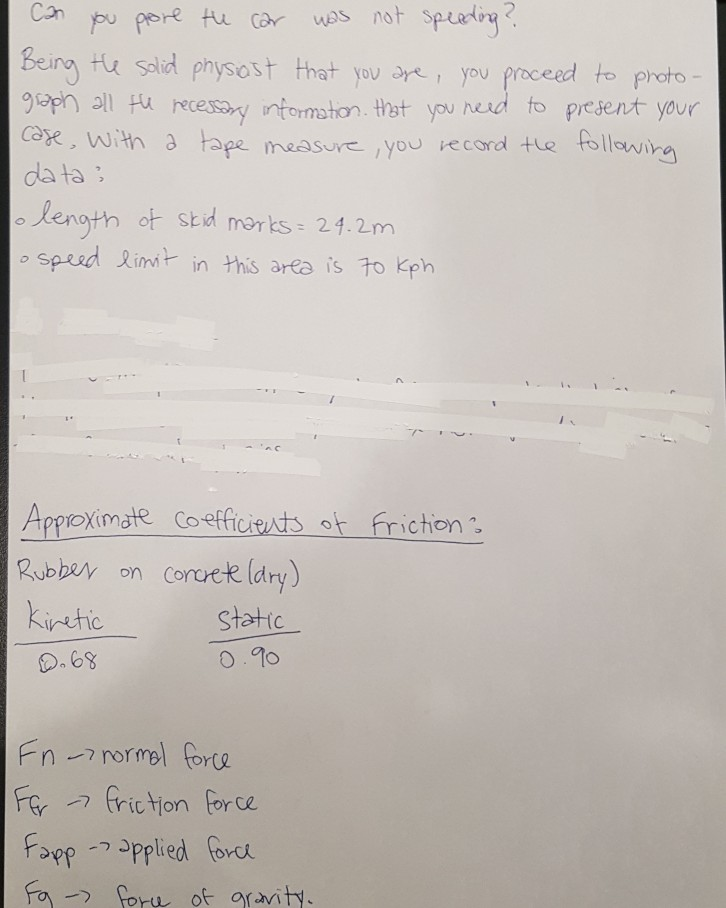 Can you prove the car was not speeding?
Being the solid physicist that you are, you proceed to photo-
graph all the necessary information. that you need to present your
case. With a tape measure, you record the following
data:
o length of skid marks = 24.2m
o speed limit in this area is 70 kph
Approximate coefficients of Friction:
Rubber on concrete (dry)
kinetic static
0.68 0.90
Fn -> normal force
Ffr -> friction force
Fapp -> applied force
Fg -> force of gravity.